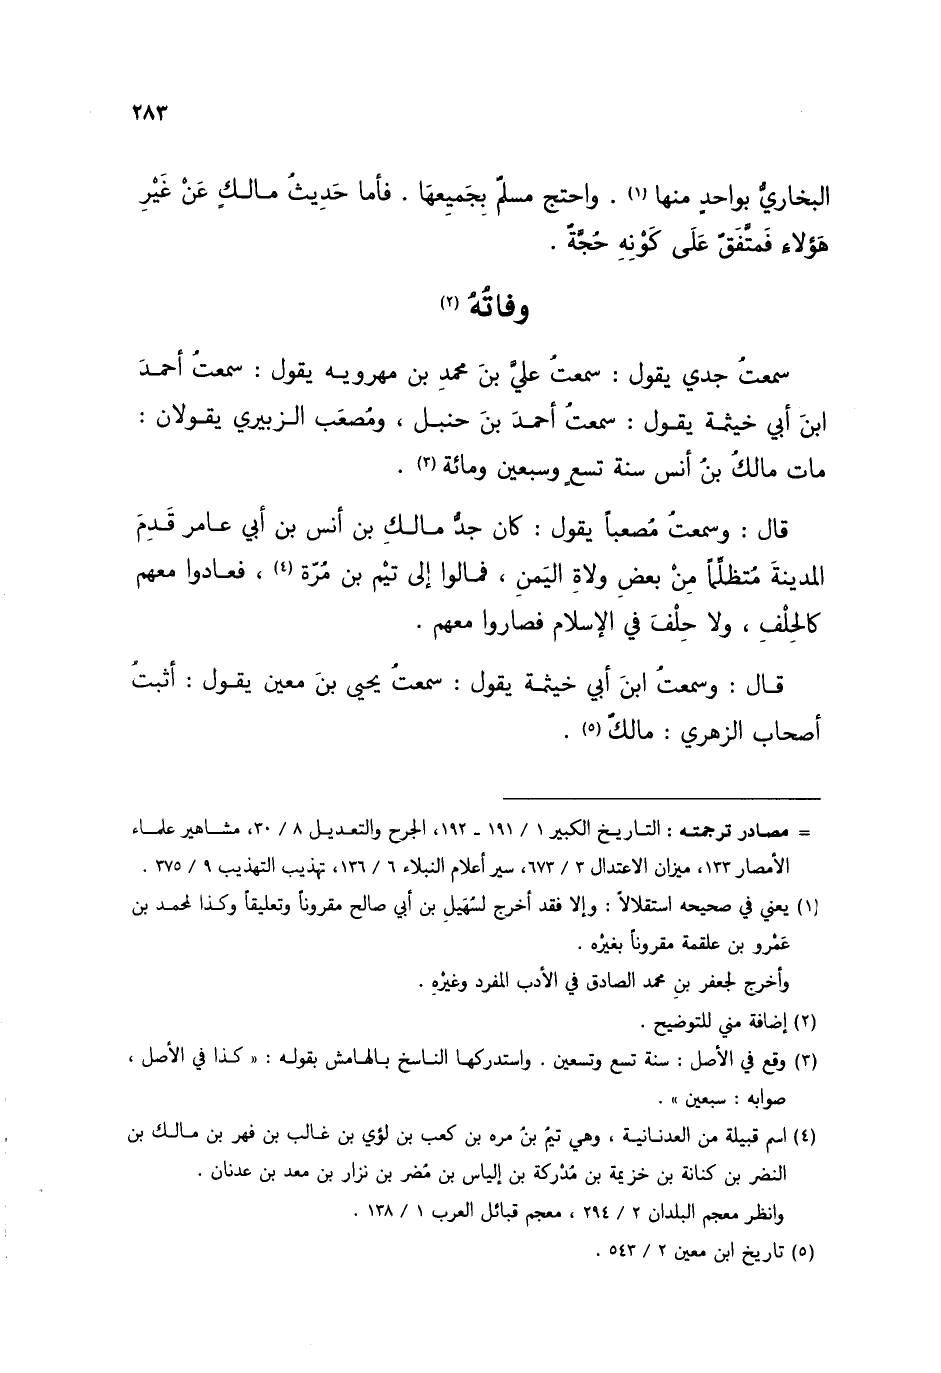 ٢٨٣
البخاريُّ بواحدٍ منها (١) . واحتج مسلمٌ بِجَمِيعِهَا . فأما حَدِيثُ مالكٍ عَنْ غَيْرِ
هَؤلاءِ فَمتَّفَقٌ عَلَى كَوْنِهِ حُجَّةً .
وفاتُهُ (٢)
سمعتُ جدي يقول : سمعتُ عليَّ بنَ محمدِ بن مهرويه يقول : سمعتُ أحمدَ
ابنَ أبي خيثمة يقول : سمعتُ أحمدَ بنَ حنبل ، ومُصعَب الزبيري يقولان :
مات مالكُ بنُ أنس سنة تسعٍ وسبعين ومائة (٣) .
قال : وسمعتُ مُصعباً يقول : كان جدُّ مالكِ بن أنس بن أبي عامر قَدِمَ
المدينةَ مُتظلِّماً مِنْ بعضِ ولاةِ اليَمنِ ، فمالوا إلى تيْم بن مُرّة (٤) ، فعادوا معهم
كالحِلْفِ ، ولا حِلْفَ في الإسلام فصاروا معهم .
قال : وسمعتُ ابنَ أبي خيثمة يقول : سمعتُ يحيى بنَ معين يقول : أثبتُ
أصحاب الزهري : مالكٌ (٥) .
= مصادر ترجمته : التاريخ الكبير ١ / ١٩١ ـ ١٩٢، الجرح والتعديل ٨ / ٣٠، مشاهير علماء
الأمصار ١٣٣، ميزان الاعتدال ٣ / ٦٧٣، سير أعلام النبلاء ٦ / ١٣٦، تهذيب التهذيب ٩ / ٣٧٥ .
(١) يعني في صحيحه استقلالاً : وإلا فقد أخرج لسُهَيل بن أبي صالح مقروناً وتعليقاً وكذا لمحمد بن
عَمْرو بن علقمة مقروناً بغيْره .
وأخرج لجعفر بن محمد الصادق في الأدب المفرد وغيْرِهِ .
(٢) إضافة مني للتوضيح .
(٣) وقع في الأصل : سنة تسع وتسعين . واستدركها الناسخ بالهامش بقوله : « كذا في الأصل ،
صوابه : سبعين » .
(٤) اسم قبيلة من العدنانية ، وهي تيمُ بنُ مره بن كعب بن لؤي بن غالب بن فهر بن مالك بن
النضر بن كنانة بن خزيمة بن مُدْركة بن إلياس بن مُضر بن نزار بن معد بن عدنان .
وانظر معجم البلدان ٢ / ٢٩٤ ، معجم قبائل العرب ١ / ١٣٨ .
(٥) تاريخ ابن معين ٢ / ٥٤٣ .